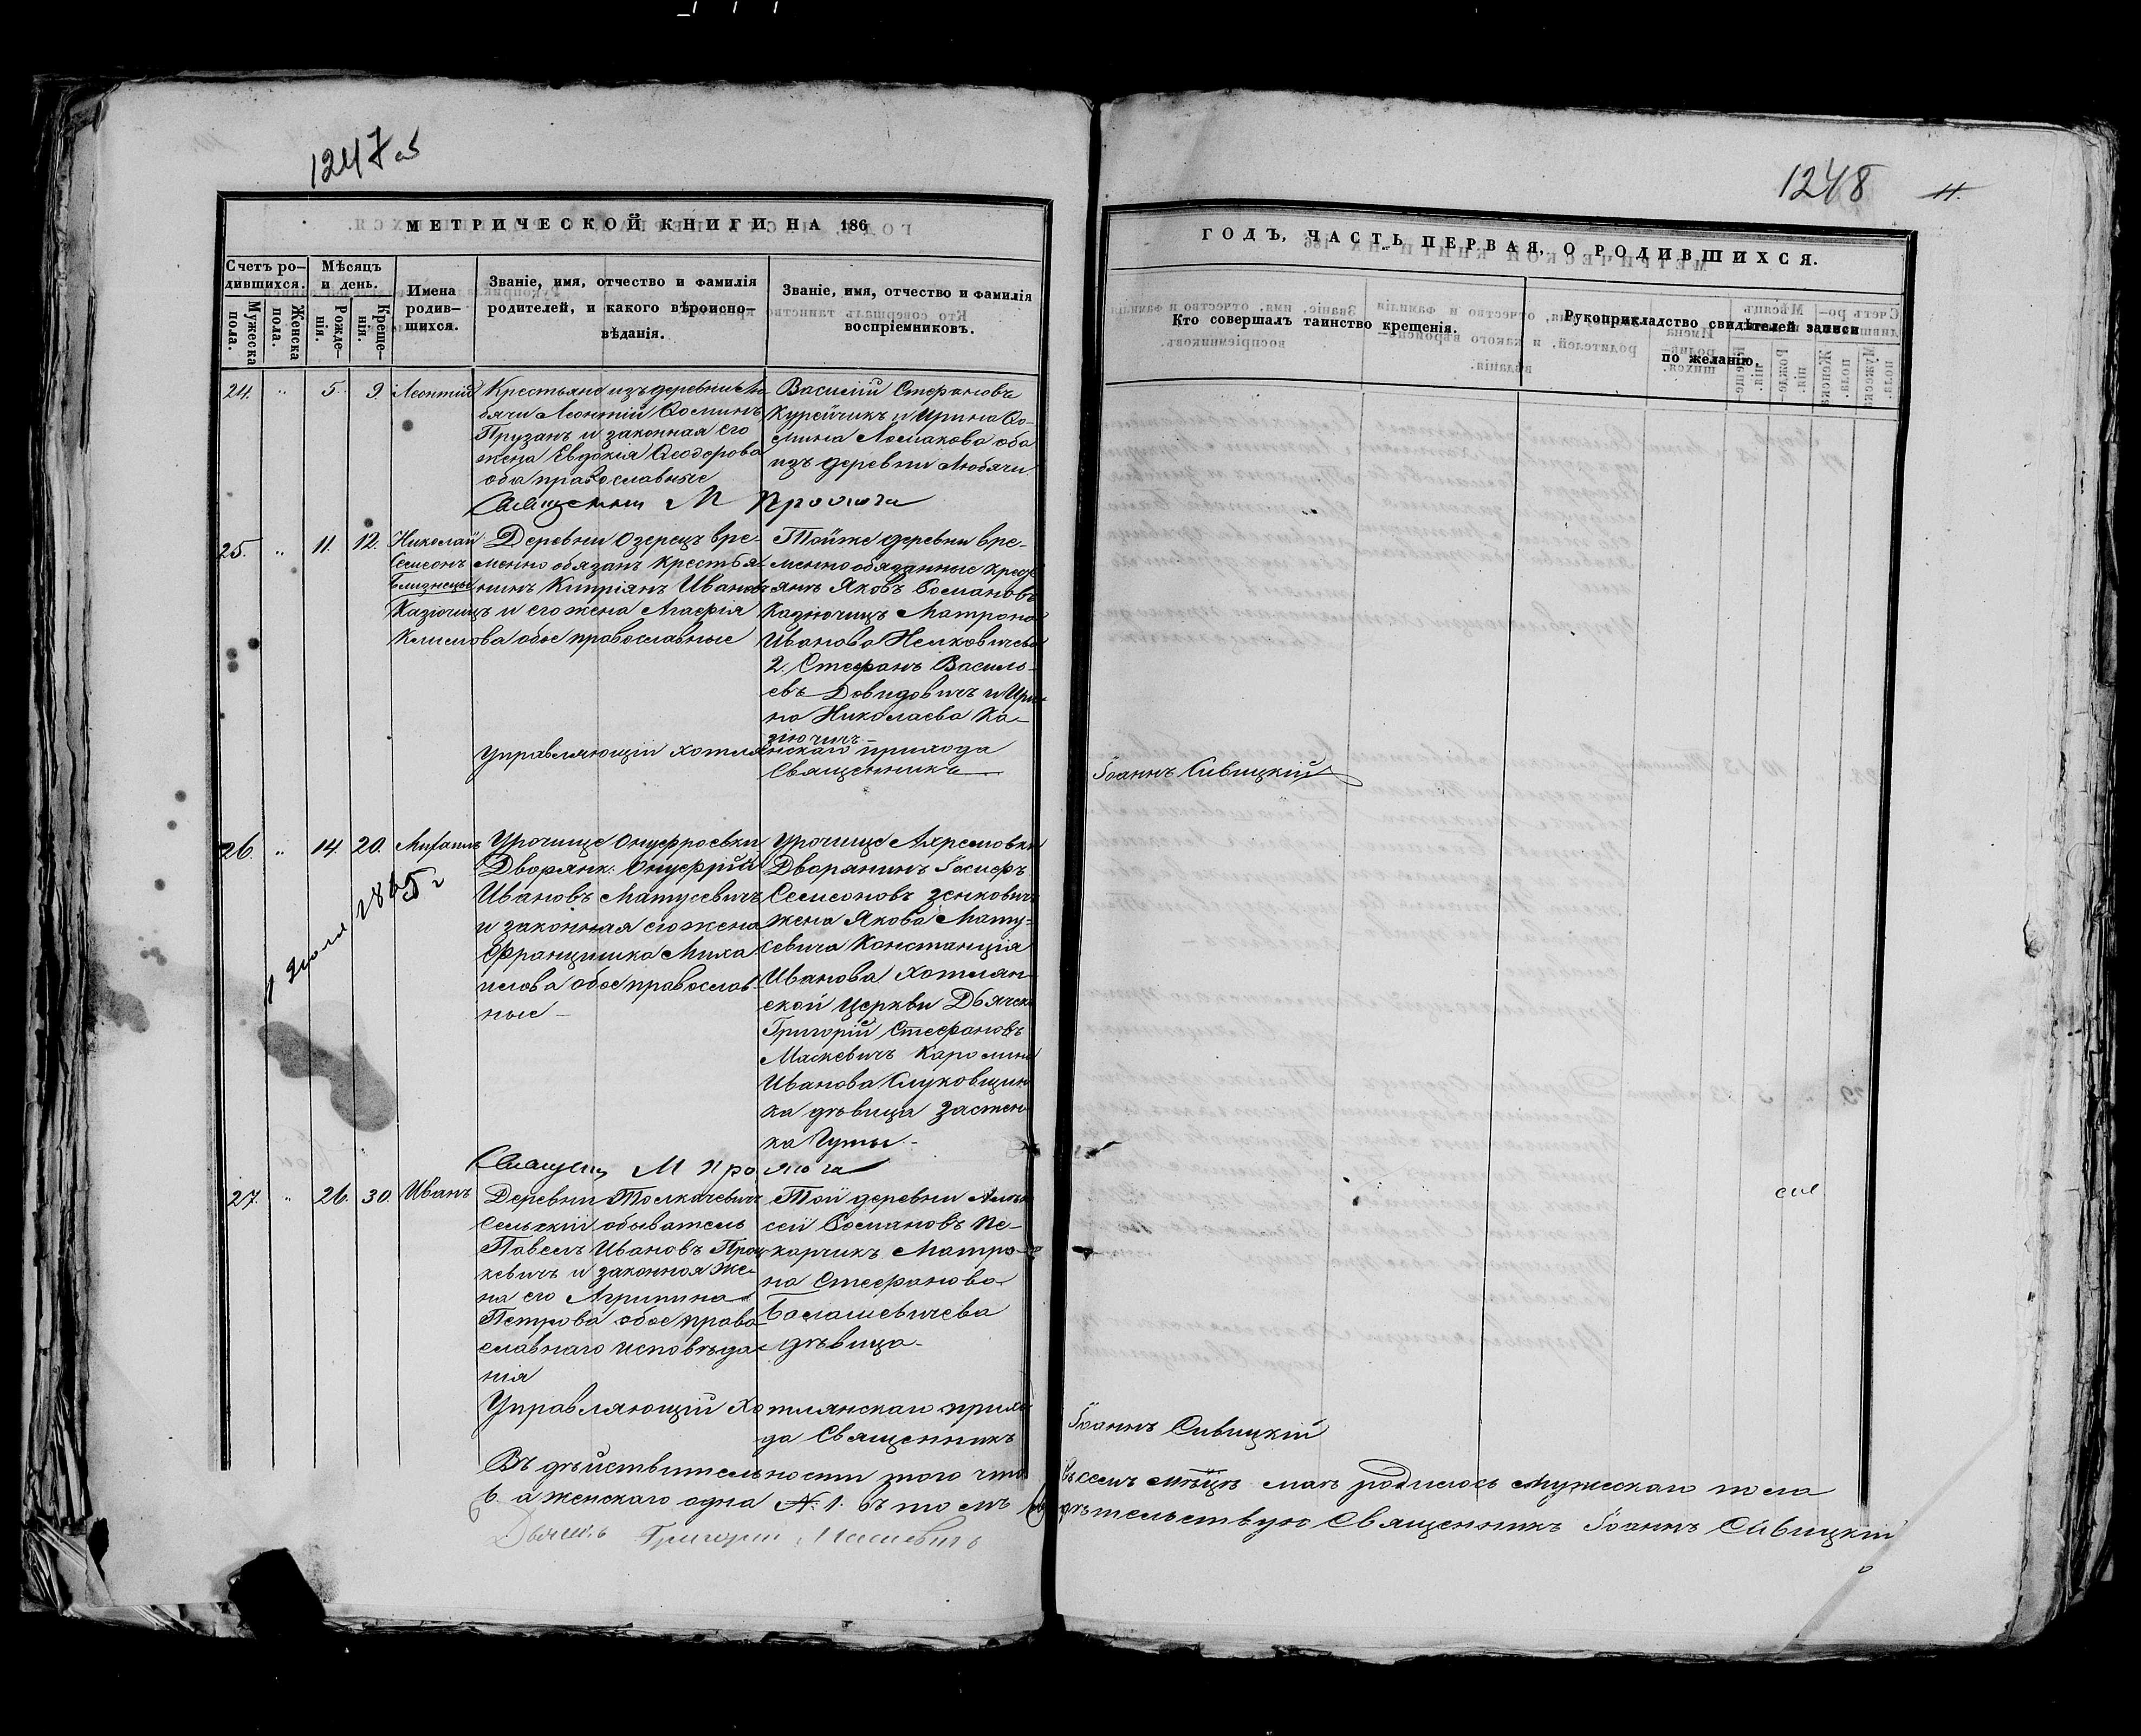 1247 об
1248
МЕТРИЧЕСКОЙ КНИГИ НА 186
Счетъ ро-
дившихся.
Мужеска
пола.
Женска
пола.
Мѣсяцъ
и день.
Рожде-
нія.
Креще-
ній.
Имена
родив-
шихся.
Званіе, имя, отчество и фамилія
родителей, и какого вѣроиспо-
вѣданія.
Званіе, имя, отчество и фамилія
воспріемниковъ.
24. " 5. 9. Леонтій
Крестьяне изъ деревни Лю-
бячи Леонтій Ѳоминъ
Прузанъ и законная его
жена Евдокія Ѳеодорова
оба православные
Василій Стефановъ
Курейчикъ и Ирина Ѳо-
мина Ломакова оба
изъ деревни Любячи
Священникъ М
25. " 11. 12. Николай
Семеонъ
близнецы
Деревни Озерецъ вре-
менно обязан. крестья-
нинъ Кипріянъ Ивановъ
Казючицъ и его жена Агафія
Климова обое православные
Тойже деревни вре-
менно обязанные крест
янъ Яковъ Романовъ
Казючицъ Матрона
Иванова Нелковичева
2. Стефанъ Василь-
евъ Довидовичъ и Ири-
на Николаева Ка-
зючицъ
Управляющій Хотлянскаго прихода
Священникъ Іоаннъ Сивицкій
26. " 14. 20. Михаилъ
Урочище Онуфроевки
Дворянк: Онуфрій
Ивановъ Матусевичъ
и законная его жена
Францишка Миха-
илова обое православ-
ные
Урочище Ахремовки
Дворянинъ Іосифъ
Семеоновъ Зенковичъ
жена Якова Мату-
севича Констанція
Иванова Хотлян-
ской Церкви Дьячекъ
Григорій Стефановъ
Маскевичъ Каролина
Иванова Слуковщин
ка дѣвица застен-
ка Гуты.
1865 г
Священ М
27. " 26. 30. Иванъ
Деревни Толкачевичъ
Сельскій обыватель
Павелъ Ивановъ Проц-
кевичъ и законная же-
на его Агрипина
Петрова обое право-
славнаго исповѣда-
нія
Той деревни Алек
сей Романовъ Пе-
карчикъ Матро-
на Стефанова
Балашевичева
дѣвица.
Управляющій Хотлянскаго прихо
да Священникъ Іоаннъ Сивицкій
Въ дѣйствительности того что въ семъ мѣцѣ маѣ родилось мужескаго пола
6 а женскаго одна №. 1. въ томъ свидѣтельствую Священникъ Іоаннъ Сивицкій
Дьячекъ Григорій Маскевичъ
ГОДЪ, ЧАСТЬ ПЕРВАЯ, О РОДИВШИХСЯ.
Кто совершалъ таинство крещенія.
Рукоприкладство свидѣтелей записи
по желанію.